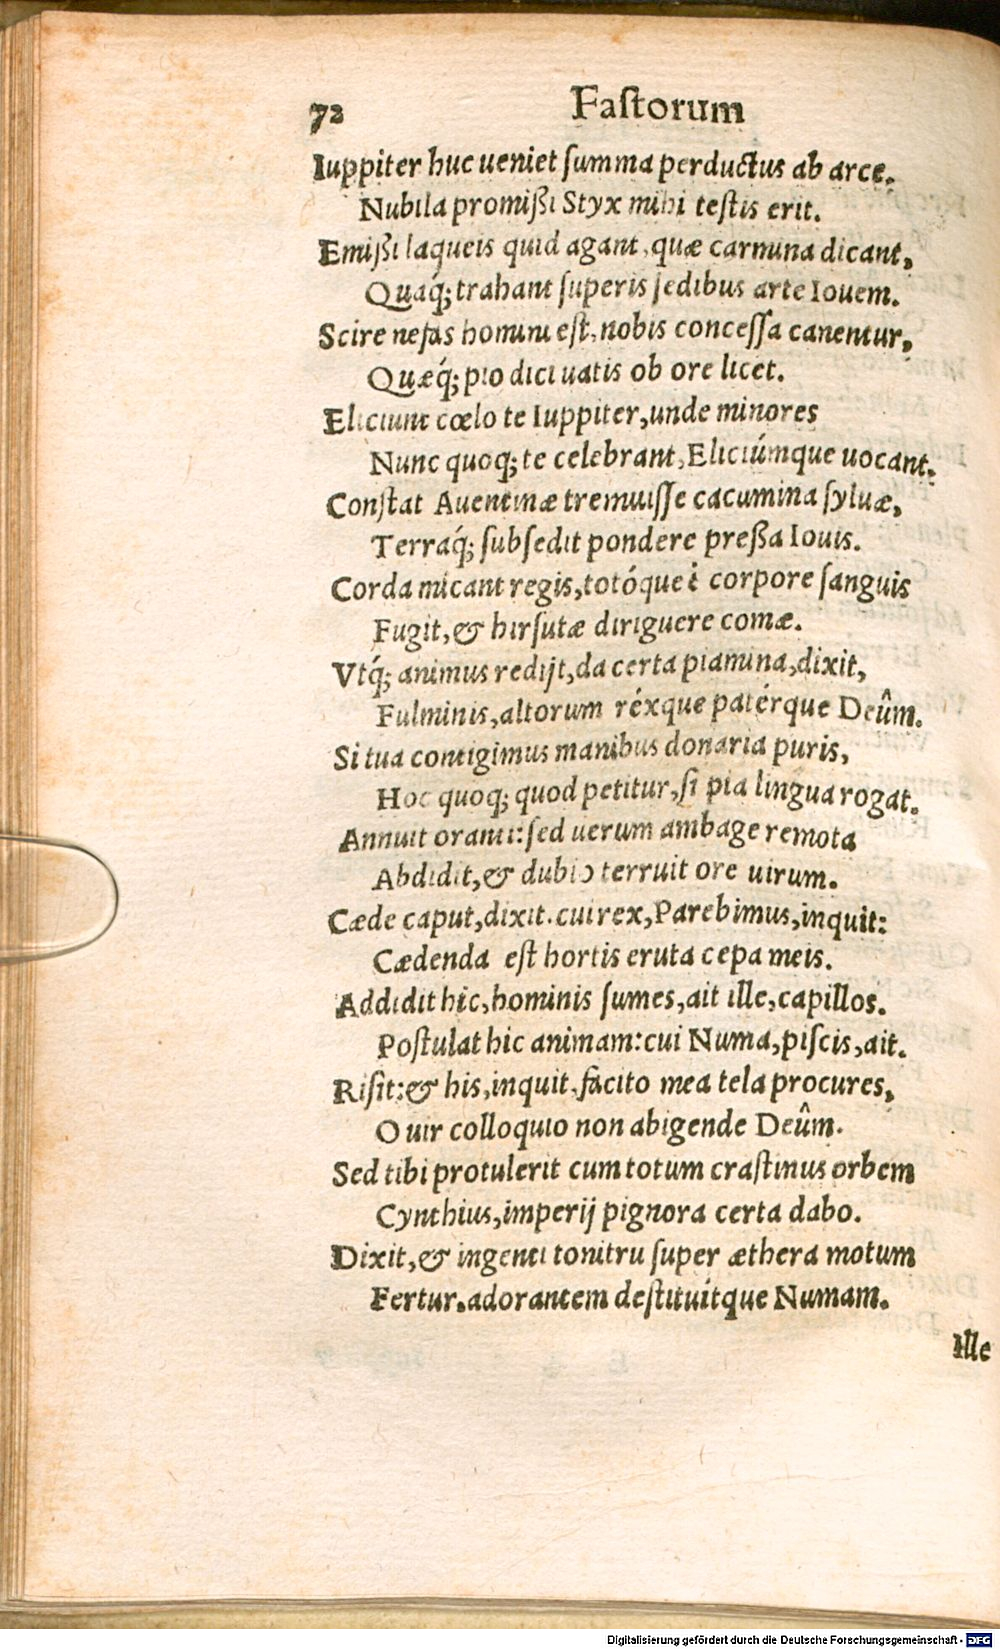 72 Faſtorum
Iuppiter huc ueniet ſumma perductus ab arce.
Nubila promißi Styx mihi teſtis erit.
Emißi laqueis quid agant, quæ carmina dicant,
Quaq́; trahant ſuperis ſedibus arte Iouem.
Scire nefas homini eſt, nobis conceſſa canentur,
Quæq́; pio dici uatis ob ore licet.
Eliciunt cœlo te Iuppiter, unde minores
Nunc quoq; te celebrant, Eliciúmque uocant.
Conſtat Auentinæ tremuiſſe cacumina ſyluæ,
Terraq́; ſubſedit pondere preßa Iouis.
Corda micant regis, totóque è corpore ſanguis
Fugit, & hirſutæ diriguere comæ.
Vtq́; animus redijt, da certa piamina, dixit,
Fulminis, altorum réxque patérque Deûm.
Si tua contigimus manibus donaria puris,
Hoc quoq; quod petitur, ſi pia lingua rogat.
Annuit oranti: ſed uerum ambage remota
Abdidit, & dubio terruit ore uirum.
Cæde caput, dixit. cui rex, Parebimus, inquit:
Cædenda eſt hortis eruta cepa meis.
Addidit hic, hominis ſumes, ait ille, capillos.
Poſtulat hic animam: cui Numa, piſcis, ait.
Riſit: & his, inquit, facito mea tela procures,
O uir colloquio non abigende Deûm.
Sed tibi protulerit cum totum craſtinus orbem
Cynthius, imperij pignora certa dabo.
Dixit, & ingenti tonitru ſuper æthera motum
Fertur. adorantem deſtituítque Numam.
Ille
Digitalisierung gefördert durch die Deutsche Forschungsgemeinschaft - DFG